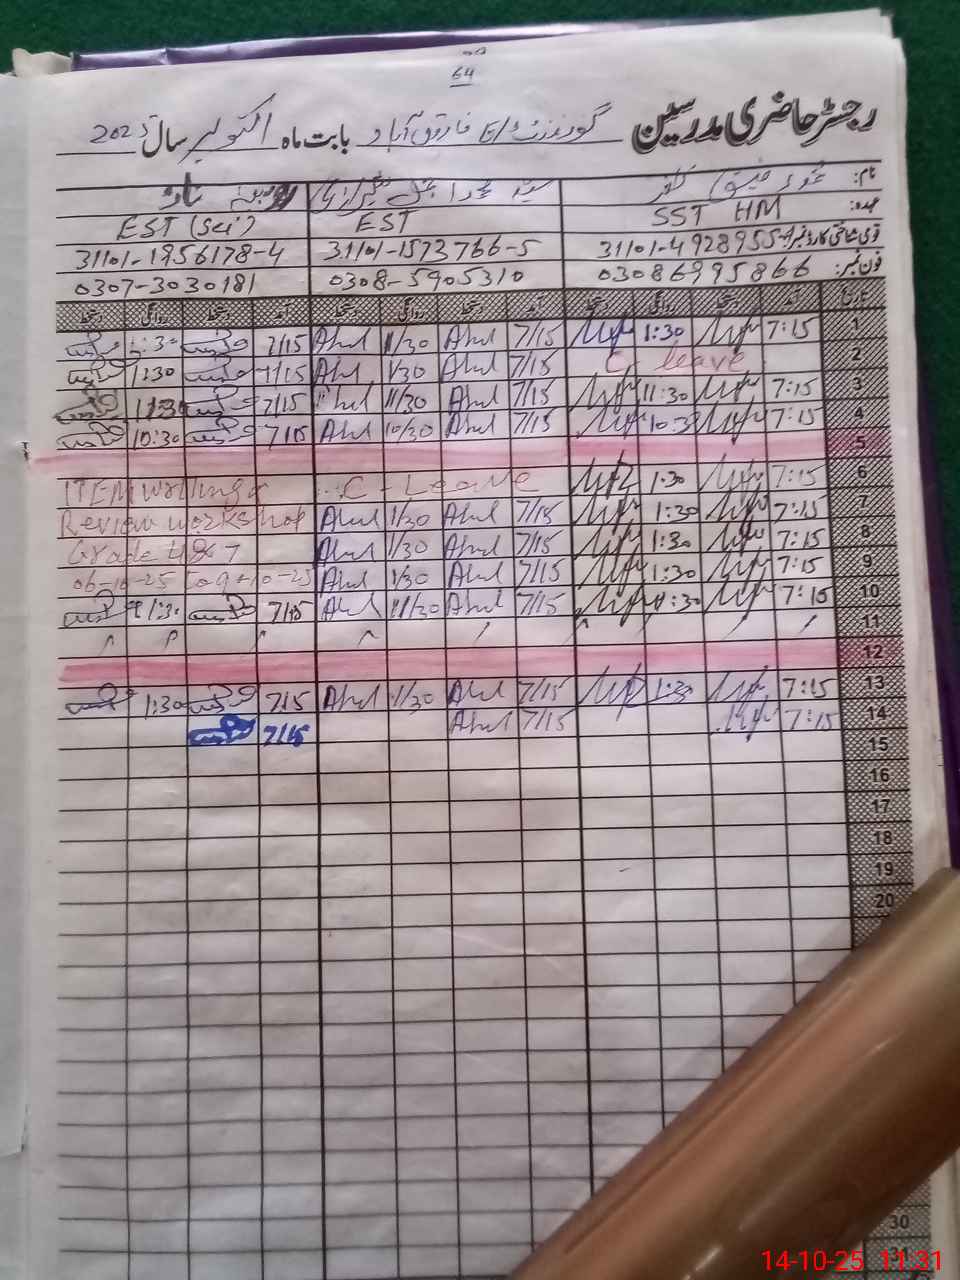 64
رجسٹر حاضری مدرسین گورنمنٹ فاروق آباد بابت ماہ اکتوبر سال 2025
نام:
عہدہ: SST HM EST EST (Sci)
قومی شناختی کارڈ نمبر 31101-4928955-9 31101-1573766-5 31101-1956178-4
فون نمبر: 03086995866 0308-5905310 0307-3030181
تاریخ آمد دستخط روانگی دستخط آمد دستخط روانگی دستخط آمد دستخط روانگی دستخط
1 7:15 1:30 7/15 Ahul 1/30 Ahul 7/15 1:30
2 C- leave 7/15 Ahul 1/30 Ahul 7/15 1:30
3 7:15 11:30 7/15 Ahul 11/30 Ahul 7/15 11:30
4 7:15 10:3 7/15 Ahul 10/30 Ahul 7/15 10:30
5
6 7:15 1:30 C-Leave ITEM Writing &
7 7:15 1:30 7/15 Ahul 1/30 Ahul Review workshop
8 7:15 1:30 7/15 Ahul 1/30 Ahul Grade 4 & 7
9 7:15 1:30 7/15 Ahul 1/30 Ahul 06-10-25 to 9-10-25
10 7:15 1:30 7/15 Ahul 11/30 Ahul 7/15 1:30
11
12
13 7:15 1:30 7/15 Ahul 1/30 Ahul 7/15 1:30
14 7:15 7/15 Ahul 7/15
15
16
17
18
19
20
30
31
14-10-25 11:31